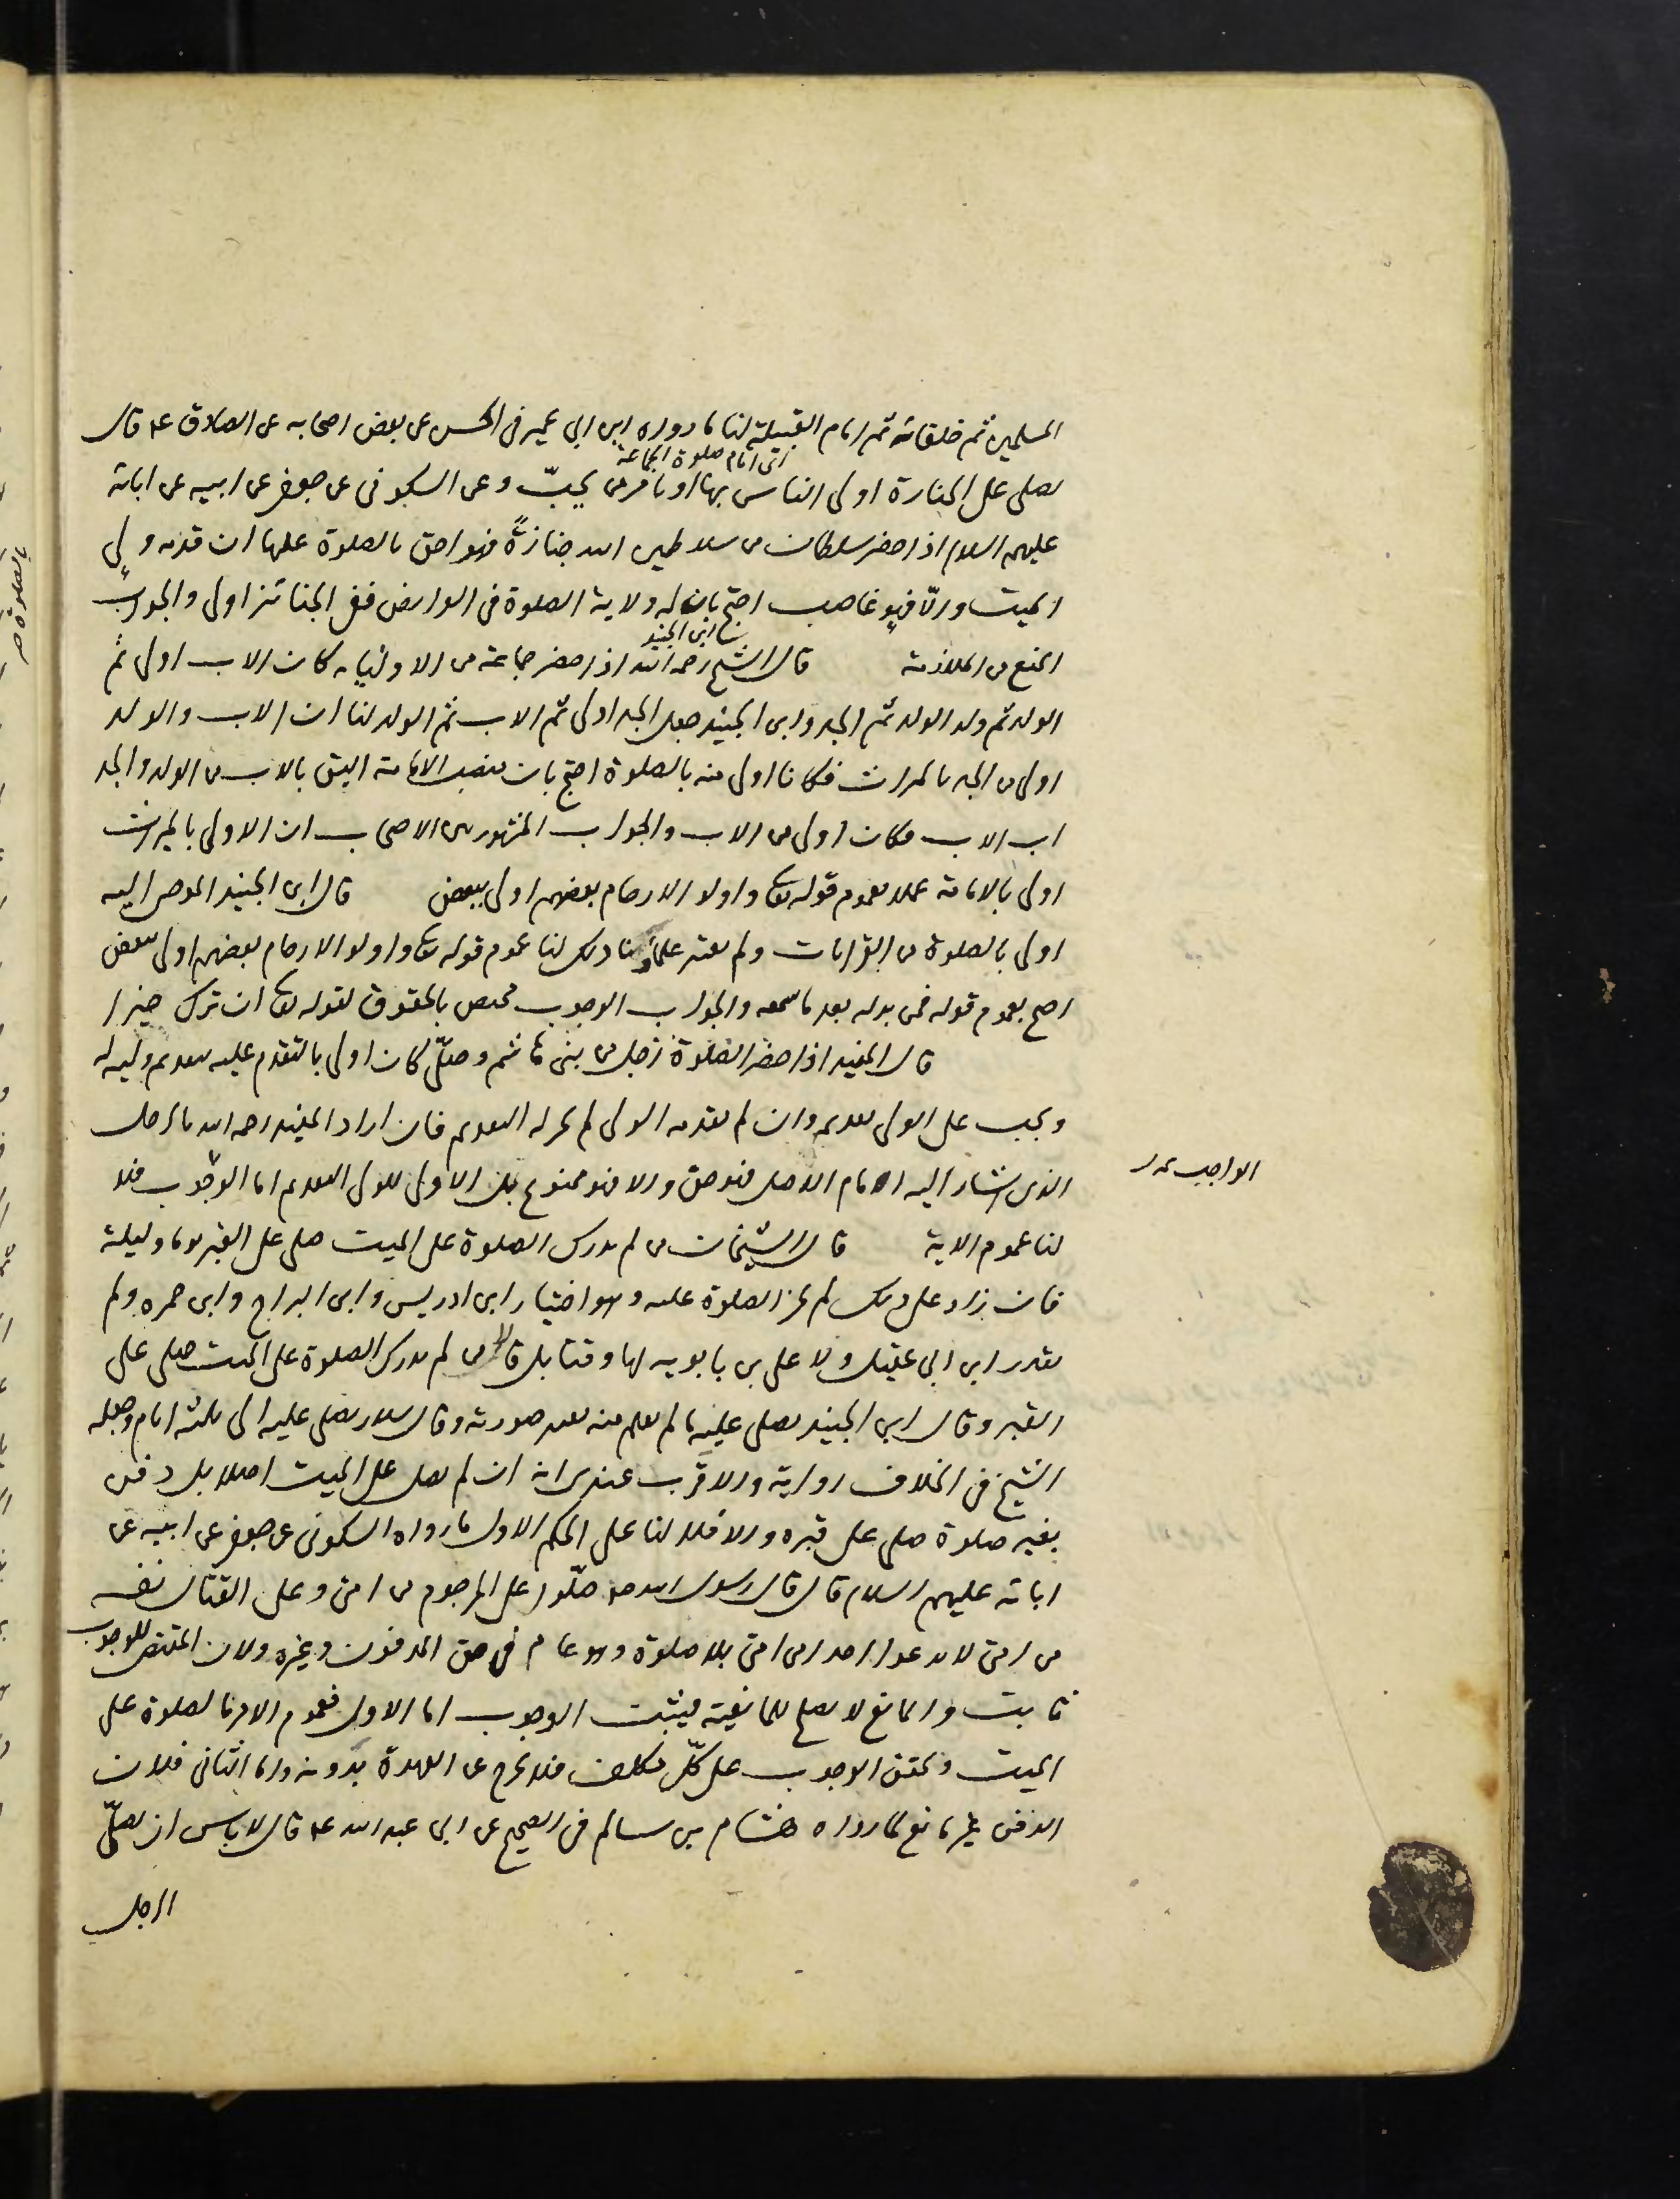 المسلمين ثم خلفائه ثم امام القبيلة لنا ما رواه ابن ابي عمير فى الحسن عن بعض اصحابه عن الصادق ع قال
اى امام صلوة الجماعة
يصلى على الجنازة اولى الناس بها او يامر من يحبّ وعن السكونى عن جعفر عن ابيه عن ابائه
عليهم السلام اذا حضر سلطان من سلاطين الله جنازةً فهو احق بالصلوة عليها ان قدمه ولى
الميت والّا فهو غاصب احتج بان له ولاية الصلوة فى الفرايض ففى الجنائز اولى والجواب
ابن الجنيد
المنع من الملازمة قال الشيخ رحمه الله اذا حضر جماعة من الاولياء كان الاب اولى ثم
الولد ثم ولد الولد ثم الجد وابن الجنيد جعل الجد اولى ثم الاب ثم الولد لنا ان الاب والولد
اولى من الجد بالميراث فكانا اولى منه بالصلوة احتج بان منصب الامامة اليق بالاب من الولد والجد
اب الاب فكان اولى من الاب والجواب المشهور بين الاصحاب ان الاولى بالميراث
اولى بالامامة عملا بعموم قوله تعالى واولوا الارحام بعضهم اولى ببعض قال ابن الجنيد الموصى اليه
اولى بالصلوة من القرابات ولم يعتبر علماؤنا ذلك لنا عموم قوله تعالى واولوا الارحام بعضهم اولى ببعض
احتج بعموم قوله فمن بدله بعد ما سمعه والجواب الوجوب مختص بالحقوق لقوله تعالى ان ترك خيرا
قال المفيد اذا حضر الصلوة رجل من بنى هاشم وصلّى كان اولى بالتقدم عليه بتقديم وليه له
ويجب على الولى تقديمه وان لم يقدمه الولى لم يجز له التقديم فان اراد المفيد رحمه الله بالرجل
الواجب
الذى اشار اليه الامام الاصل فهو حق والا فهو ممنوع بل الاولى للولى التقديم اما الوجوب فلا
لنا عموم الاية قال الشيخان من لم يدرك الصلوة على الميت صلى على القبر يوما وليلة
فان زاد على ذلك لم يجز الصلوة عليه وهو اختيار ابن ادريس وابن البراج وابن حمزه ولم
يقدر ابن ابى عقيل ولا على بن بابويه لها وقتا بل قالا من لم يدرك الصلوة على الميت صلى على
القبر وقال ابن الجنيد يصلى عليه ما لم يعلم منه تغير صورته وقال سلار يصلى عليه الى ثلثة ايام وجعله
الشيخ فى الخلاف رواية والاقرب عندى انه ان لم يصل على الميت اصلا بل دفن
بغير صلوة صلى على قبره والا فلا لنا على الحكم الاول ما رواه السكونى عن جعفر عن ابيه عن
ابائه عليهم السلام قال قال رسول الله ص صلّوا على المرجوم من امتى وعلى القتال نفسه
من امتى لا تدعوا احدا من امتى بلا صلوة وهو عام فى حق المدفون وغيره ولان المقتضى للوجوب
ثابت والمانع لا يصلح للمانعية فيثبت الوجوب اما الاول فعموم الامر بالصلوة على
الميت وتحقق الوجوب على كلّ مكلف فلا يخرج عن العهدة بدونه واما الثانى فلان
الدفن غير مانع لما رواه هشام بن سالم فى الصحيح عن ابى عبد الله ع قال لا باس ان يصلّى
الرجل
بالصلوة